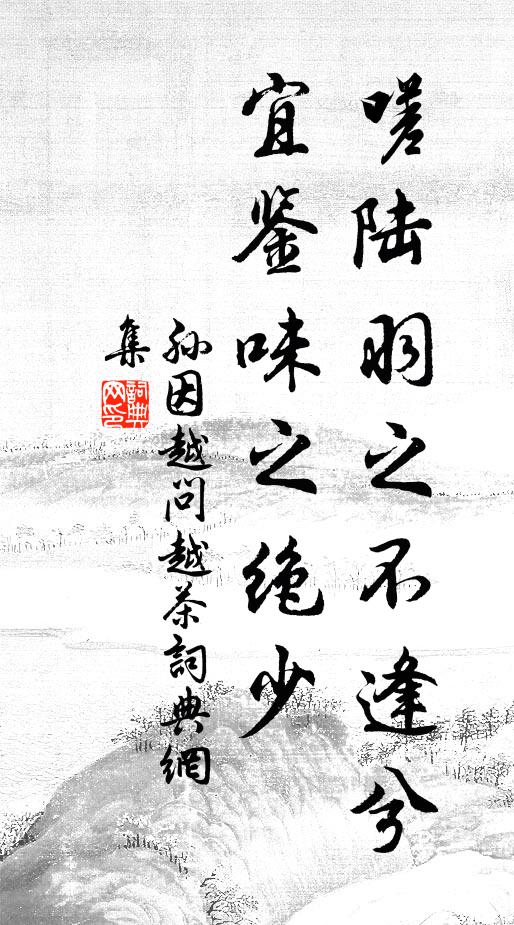 嗟陆羽之不逢兮
宜鉴味之绝少
孙因越问越茶詞典網
集
詞典网印